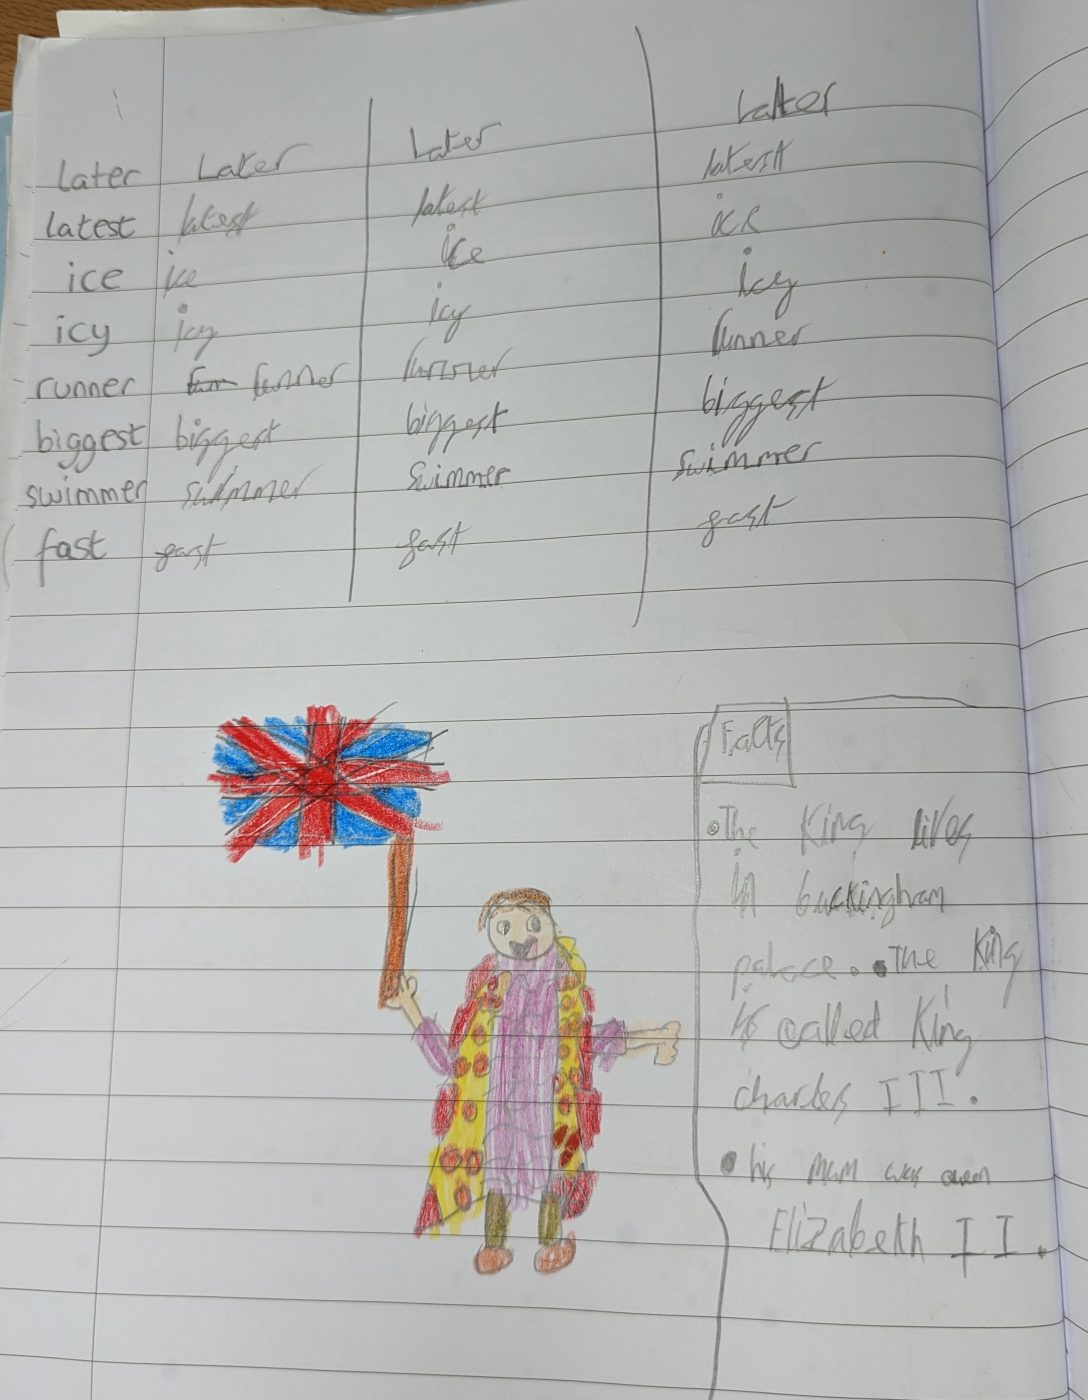 later Later Later Later
latest latest latest latest
ice ice ice ice
icy icy icy icy
runner runner runner
biggest biggest biggest biggest
swimmer swimmer swimmer swimmer
fast fast fast fast
Facts
•The King lives
in buckingham
palace. •The King
is called King
charles III.
• his mum was
Elizabeth II.